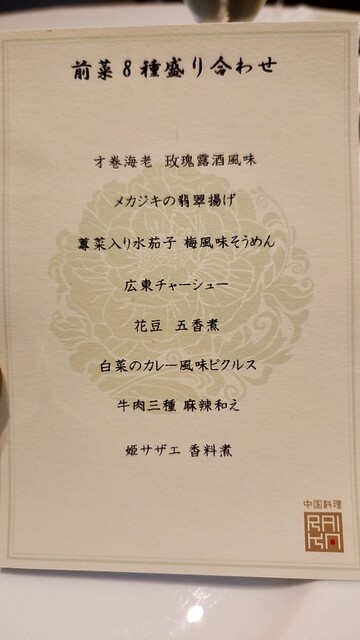 前菜8種盛り合わせ
才巻海老 玫瑰露酒風味
メカジキの翡翠揚げ
蓴菜入り水茄子 梅風味そうめん
広東チャーシュー
花豆 五香煮
白菜のカレー風味ピクルス
牛肉三種 麻辣和え
姫サザエ 香料煮
中国料理
RAI
KO